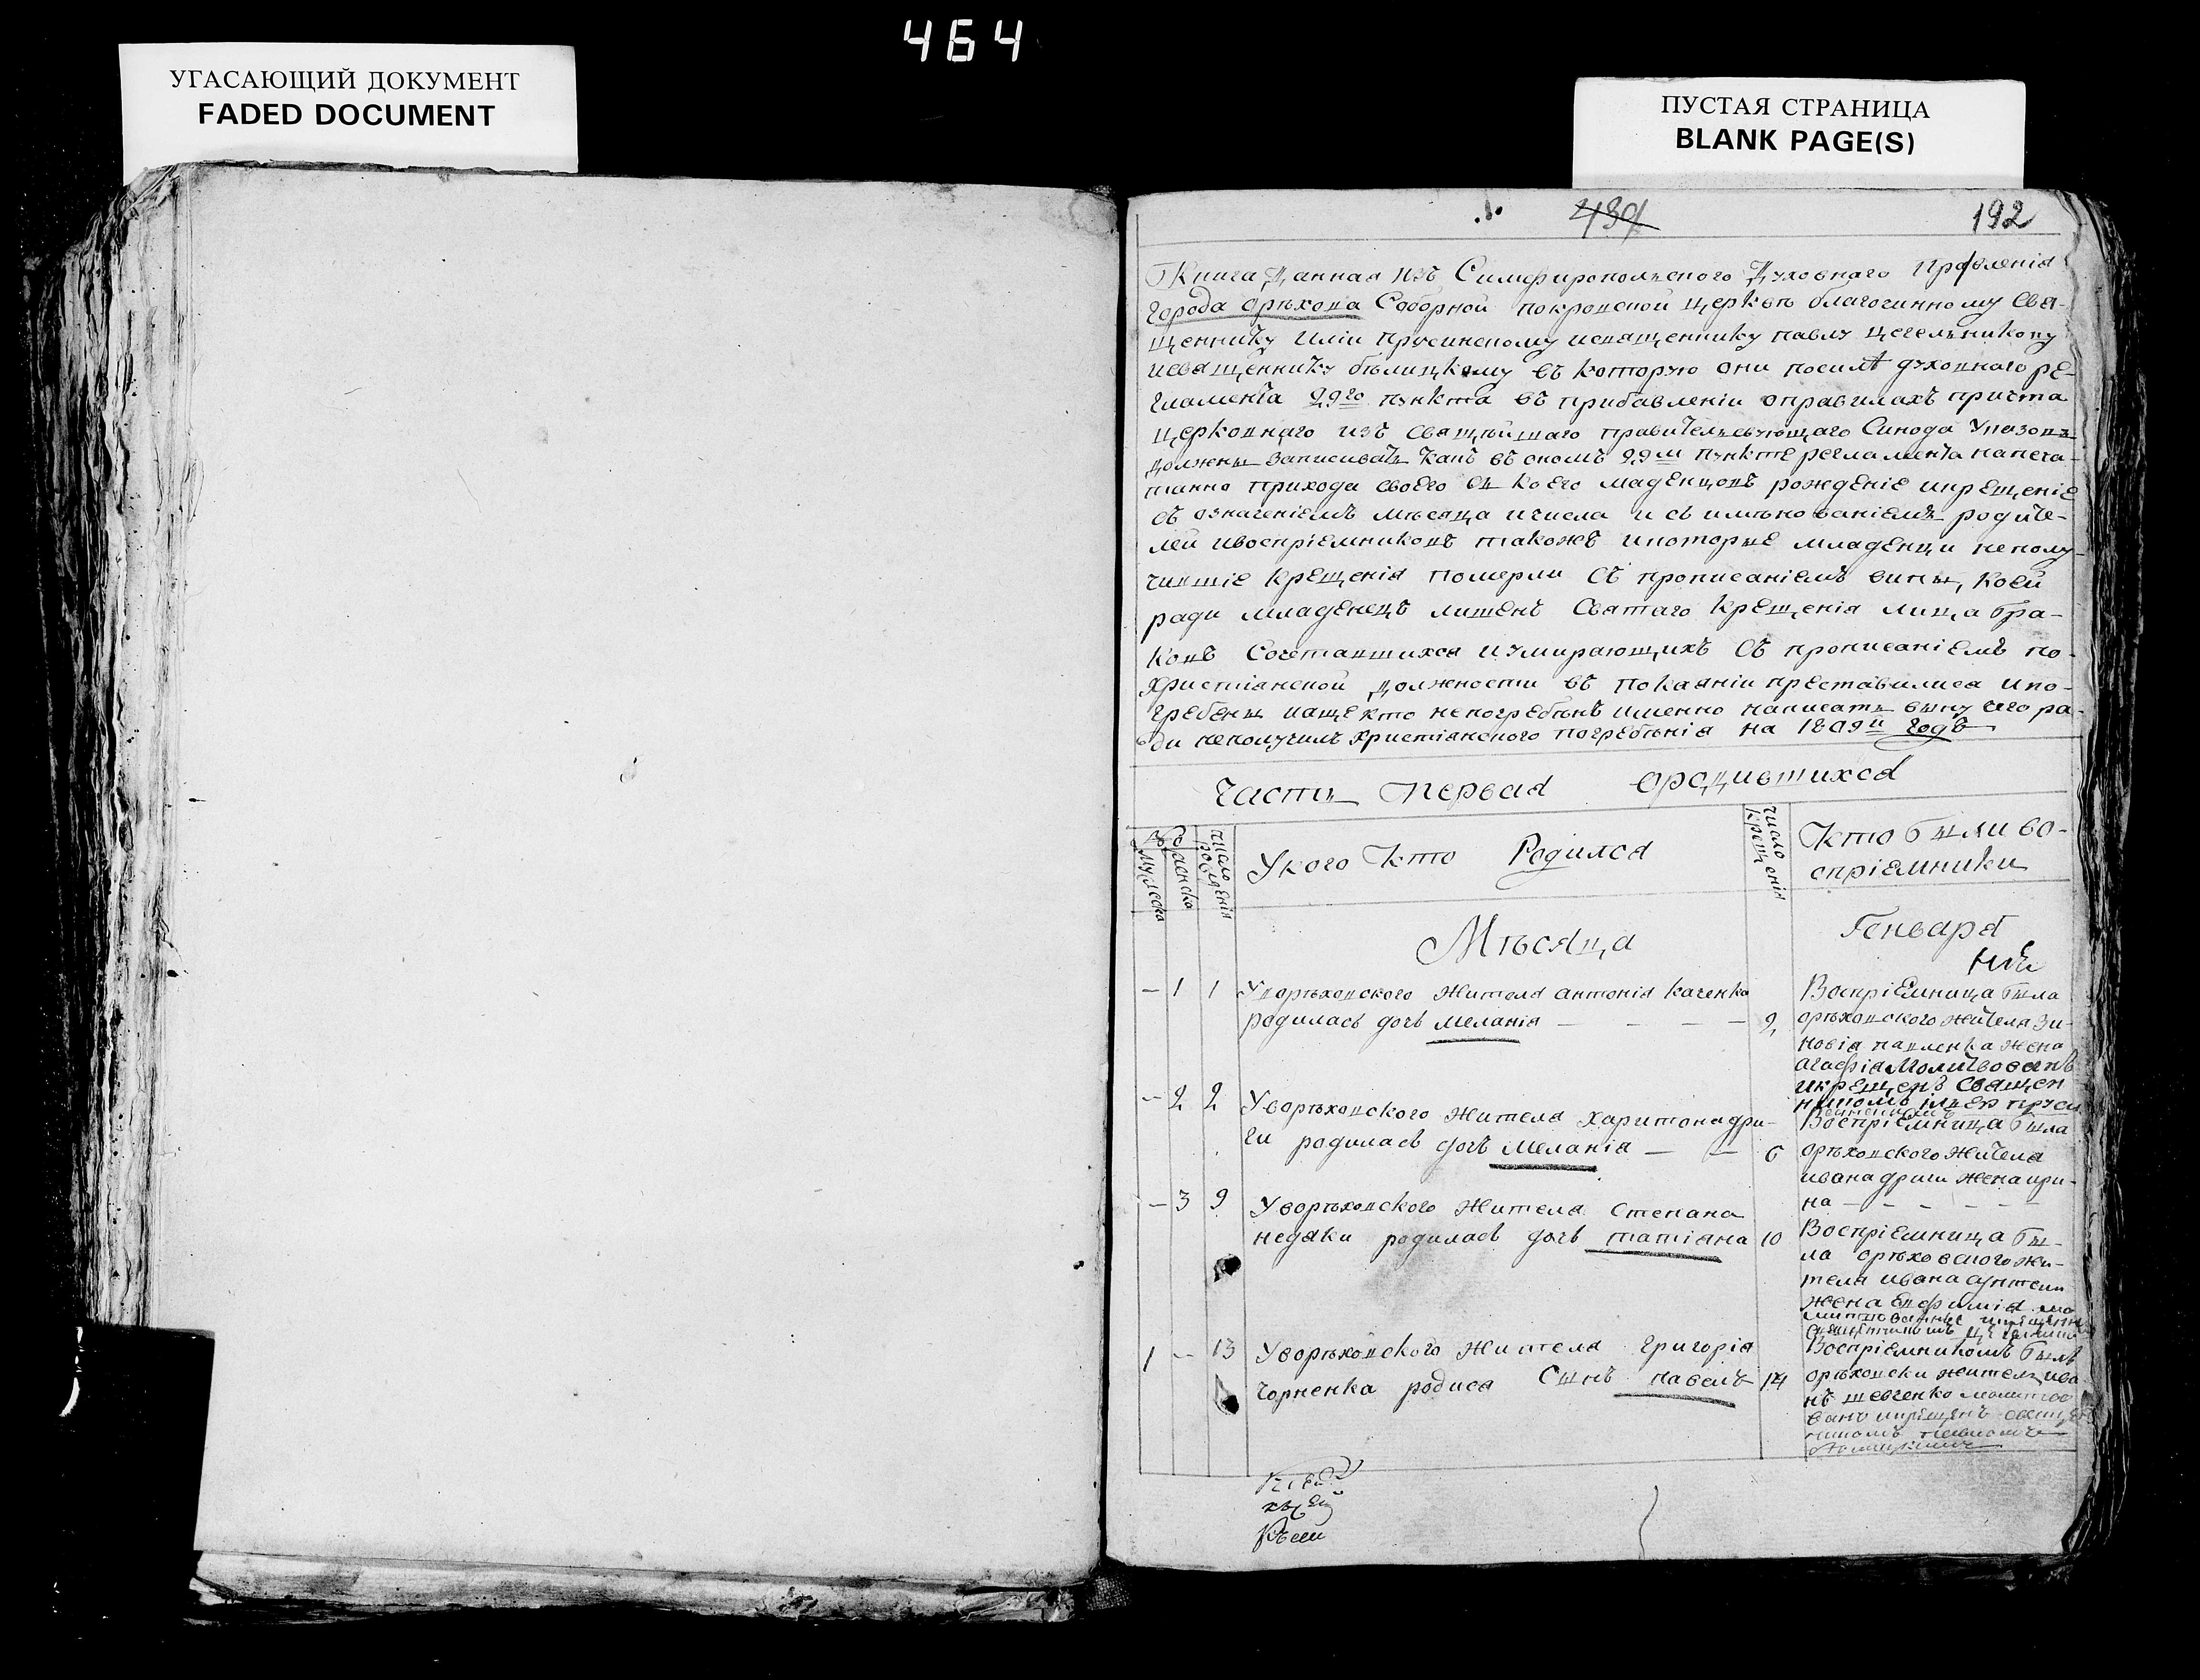 464
УГАСАЮЩИЙ ДОКУМЕНТ
FADED DOCUMENT
ПУСТАЯ СТРАНИЦА
BLANK PAGE(S)
192
Книга Данная изъ Симферопольского Духовнаго Правленія
города орѣхова Соборной покровской церквѣ благочинному Свя-
щеннику Иліи прусинскому исвященнику павлу цегельникову
исвященнику бѣлицкому въ которую они посилѣ духовнаго ре-
гламента 29го пункта въ прибавленіи оправилахъ причта
церковнаго изъ Святѣйшаго правительсвующаго Синода Указовъ
должны записивать какъ въ ономъ 29м пунктѣ регламента напеча-
танно прихода своего въ коего маденцовъ рожденіе икрещеніе
съ означеніемъ мѣсяца ичисла и съ имѣнованіемъ родите-
лей ивоспріемниковъ такожъ икоторые младенци неполу-
чившіе крещенія померли съ прописаніемъ вины, коей
ради младенецъ лишенъ Святаго крещенія лица бра-
ковъ Сочетавшихся иумирающихъ съ прописаніемъ по-
христіянской должности въ покаяніи преставилися ипо-
гребены иаще кто непогребѣнъ именно написать вину чего ра-
ди неполучилъ христіянского погребѣнія на 1809й годъ
Часть первая ородившихся
мужеска
женска
число рожденія
Укого кто Родился
число крещенія
Кто были во-
спріемники
Мѣсяца Генваря
— 1 1 Уворѣховского жителя антонія каченка
родилась дочь меланія — — — — 9
Воспріемница была
орѣховского жителя зи-
новія павленка жена
агафія Молитвованъ
икрещенъ Священ
Воспріемница была
— 2 2 Уворѣховского жителя харитона дри-
ги родилась дочь меланія — — 6
орѣховского жителя
ивана дриги жена ири-
на — — — — —
— 3 9 Уворѣховского жителя Степана
недяки родилась дочь татіяна 10
Воспріемница бы-
ла орѣховского жи-
теля ивана
жена Евфимія мо
1 — 13 Уворѣховского жителя григорія
чорненка родися Сынъ павелъ 14
Воспріемникомъ былъ
орѣховски житель ива-
нъ шевченко молитво
ванъ икрещенъ